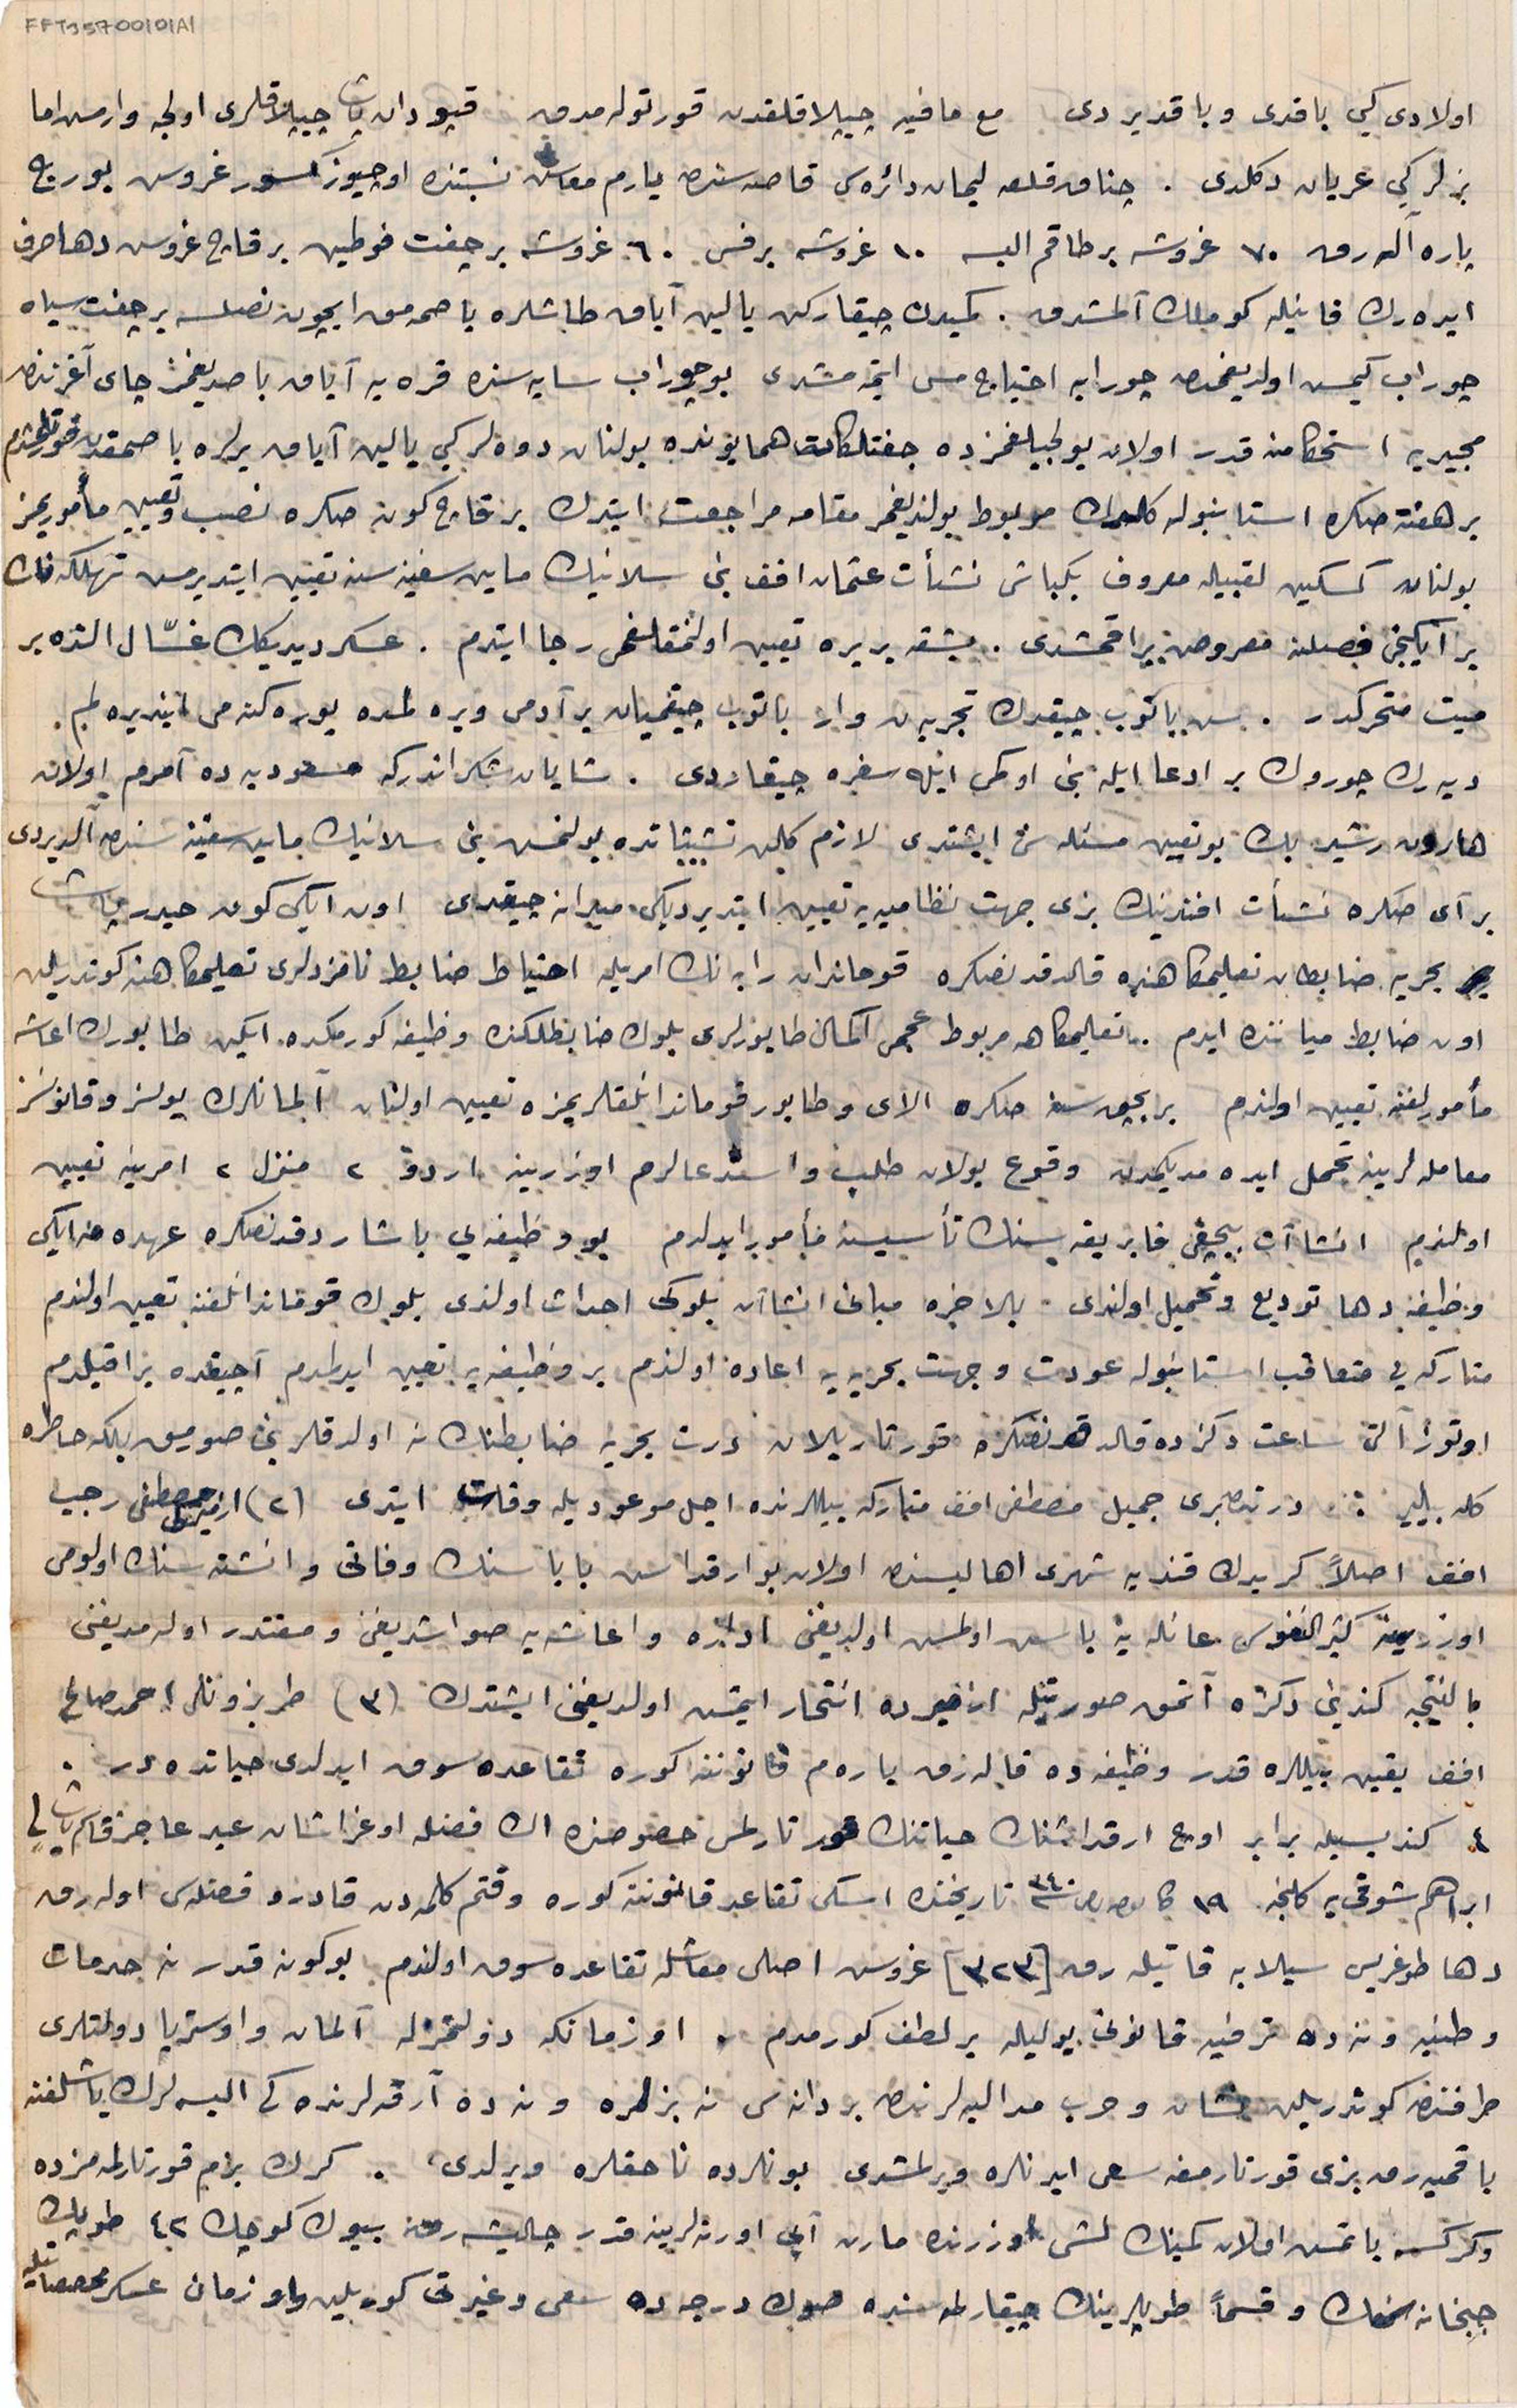 FFT35700101A1
اولادی كبی باقدی و باقدیردی مع مافیه چیپلاقلقدن قورتوله مدق قپودان پاشا چیپلاقلری اولجه وارمش اما
بزلر كبی عریان دكلدی . چناق قلعه لیمان دائره سی قاصه سندن یارم معاش نسبتنده اوچیوز كسور غروش بورج
پاره آله رق ۷۰ غروشه بر طاقم البسه ۱۰ غروشه بر فس ۶۰ غروشه بر چفت فوطین بر قاچ غروش دها صرف
ایده رك فانیله كوملك آلمشدق . كمیدن چیقاركن یالین آیاق طاشلره باصمه مق ایچون نصلسه بر چفت سیاه
چوراب كیمش اولدیغمدن چورابه احتیاج مس ایتمه مشدی بو چوراب سایه سنده قره یه آیاق باصدیغمز چای آغزندن
مجیدیه استحكامنه قدر اولان یولجیلغمزده جفتلكات همایونده بولنان دوه لر كبی یالین آیاق یرلره باصمقدن قورتلمشدم
بر هفته صكره استانبوله كله رك مربوط بولندیغمز مقامه مراجعت ایتدك بر قاچ كون صكره نصب و تعیین مأموریمز
بولنان كسكین لقبیله معروف بیكباشی نشأت عثمان افندی بنی سلانیك ماین سفینه سنه تعیین ایتدیرمش تهلكه نك
بر ایكنجی فصلنه معروض براقمشدی . بشقه بر یره تعیین اولنمقلغمی رجا ایتدم . عسكر دیدیكك غسّال النده بر
میت متحركدر . سن باتوب چیقدك تجربه ن وار باتوب چیقمیان بر آدمی ویره لمده یوره كنه می ایندیره لم .
دیه رك چوروك بر ادعا ایله بنی اوكمی ایله سفره چیقاردی . شایان شكراندركه مسعودیه ده آمرم اولان
هارون رشید بك بو تعیین مسئله سنی ایشتدی لازم كلن تشبثاتده بولنمش بنی سلانیك ماین سفینه سندن آلدیردی
بر آی صكره نشأت افندینك بزی جهت نظامییه یه تعیین ایتدیردیكی میدانه چیقدی اون ایكی كون حیدر پاشا
بحریه ضابطان تعلیمكاهنده قالدقدنصكره قوماندان رابه نك امریله احتیاط ضابط نامزدلری تعلیمكاهنه كوندریلن
اون ضابط میاننده ایدم . تعلیمكاهه مربوط عجمی اكمال طابورلری بلوك ضابطلكنده وظیفه كورمكده ایكن طابورك اعاشه
مأمورلغنه تعیین اولندم بر بچق سنه صكره الای و طابور قوماندانلقلریمزه تعیین اولنان آلمانلرك یولسز و قانونسز
معامله لرینه تحمل ایده مدیكمدن وقوع بولان طلب و استدعالرم اوزرینه اردو ۲ منزل ۲ امرینه تعیین
اولندم انشاآت بیچقی فابریقه سنك تأسیسنه مأمور ایدلدم بو وظیفه یی باشاردقدنصكره عهده مه ایكی
وظیفه دها تودیع و تحمیل اولندی . بالاخره مبانی انشاآت بلوكی احداث اولندی بلوك قوماندانلغنه تعیین اولندم
متاركه یی متعاقب استانبوله عودت و جهت بحریه یه اعاده اولندم بر وظیفه یه تعیین ایدلمدم آچیقده براقیلدم
اوتوز آلتی ساعت دكزده قالدقدنصكره قورتاریلان درت بحریه ضابطنك نه اولدقلرینی صورمق بلكه خاطره
كله بیلیر : درتدن بری جمیل مصطفی افندی متاركه ییللرنده اجل موعودیله وفات ایتدی (۲) ازمیرلی مصطفی رجب
افندی اصلاً كریدك قندیه شهری اهالیسندن اولان بو ارقداش باباسنك وفاتی و انشته سنك اولومی
اوزرینه كثیر النفوس عائله یه باش اولمش اولدیغنی اداره و اعاشه یه صواشدیغنی و مقتدر اوله مدیغنی
بالنتیجه كندینی دكزه آتمق صورتیله ازمیرده انتحار ایتمش اولدیغنی ایشتدك (۳) طربزونلی احمد صالح
افندی یقین ییللره قدر وظیفه ده قاله رق یاره م قانوننه كوره تقاعده سوق ایدلدی حیاتده در .
٤ كندیسیله برابر اوچ ارقداشنك حیاتنك قورتارلمسی خصوصنده اك فضله اوغراشان عبد عاجز قاسم پاشالی
ابراهم شوقی یه كلنجه ۱۹ كانون ۳۴۰ تاریخنده اسكی تقاعد قانوننه كوره وقتم كلمه دن قادرو فضله سی اوله رق
دها طوغریسی سیلابه قاتیله رق [۳۲۳] غروش اصلی معاشله تقاعده سوق اولندم بوكونه قدر نه خدمات
وطنیه و نه ده ترفیه قانونی یولیله بر لطف كورمدم . او زمانكه دولتمزله آلمان و اوستریا دولتلری
طرفندن كوندریلن نشان و حرب مدالیه لرندن بر دانه سی نه بزلره و نه ده آرقه لرنده كی البسه لرك یاشلغنه
باقمیه رق بزی قورتارمغه سعی ایدنلره ویرلمشدی بونلرده ناحقلره ویرلدی . كرك بزم قورتارلمه مزده
و كركسه باتمش اولان كمینك لشی اوزرنده مارت آیی اورته لرینه قدر چالیشه رق بیوك كوچك ٤۲ طوپك
جبخانه سنك و قسماً طوپلرینك چیقارلمه سنده صوك درجه ده سعی و غیرتی كوریلن او زمان عسكر